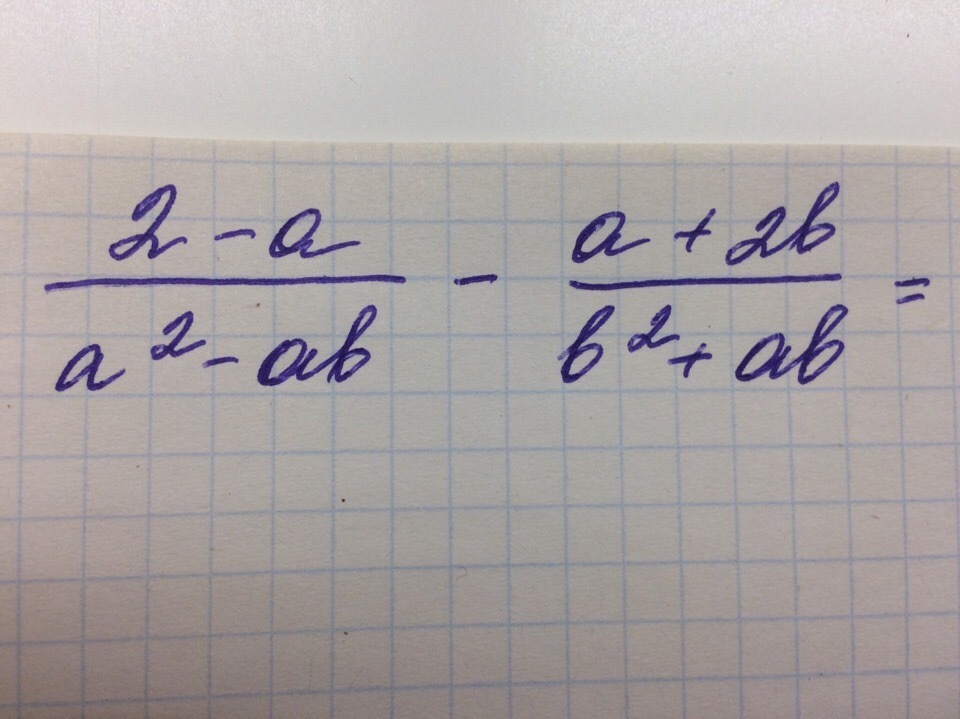 \frac{2-a}{a^2-ab} - \frac{a+2b}{b^2+ab} =